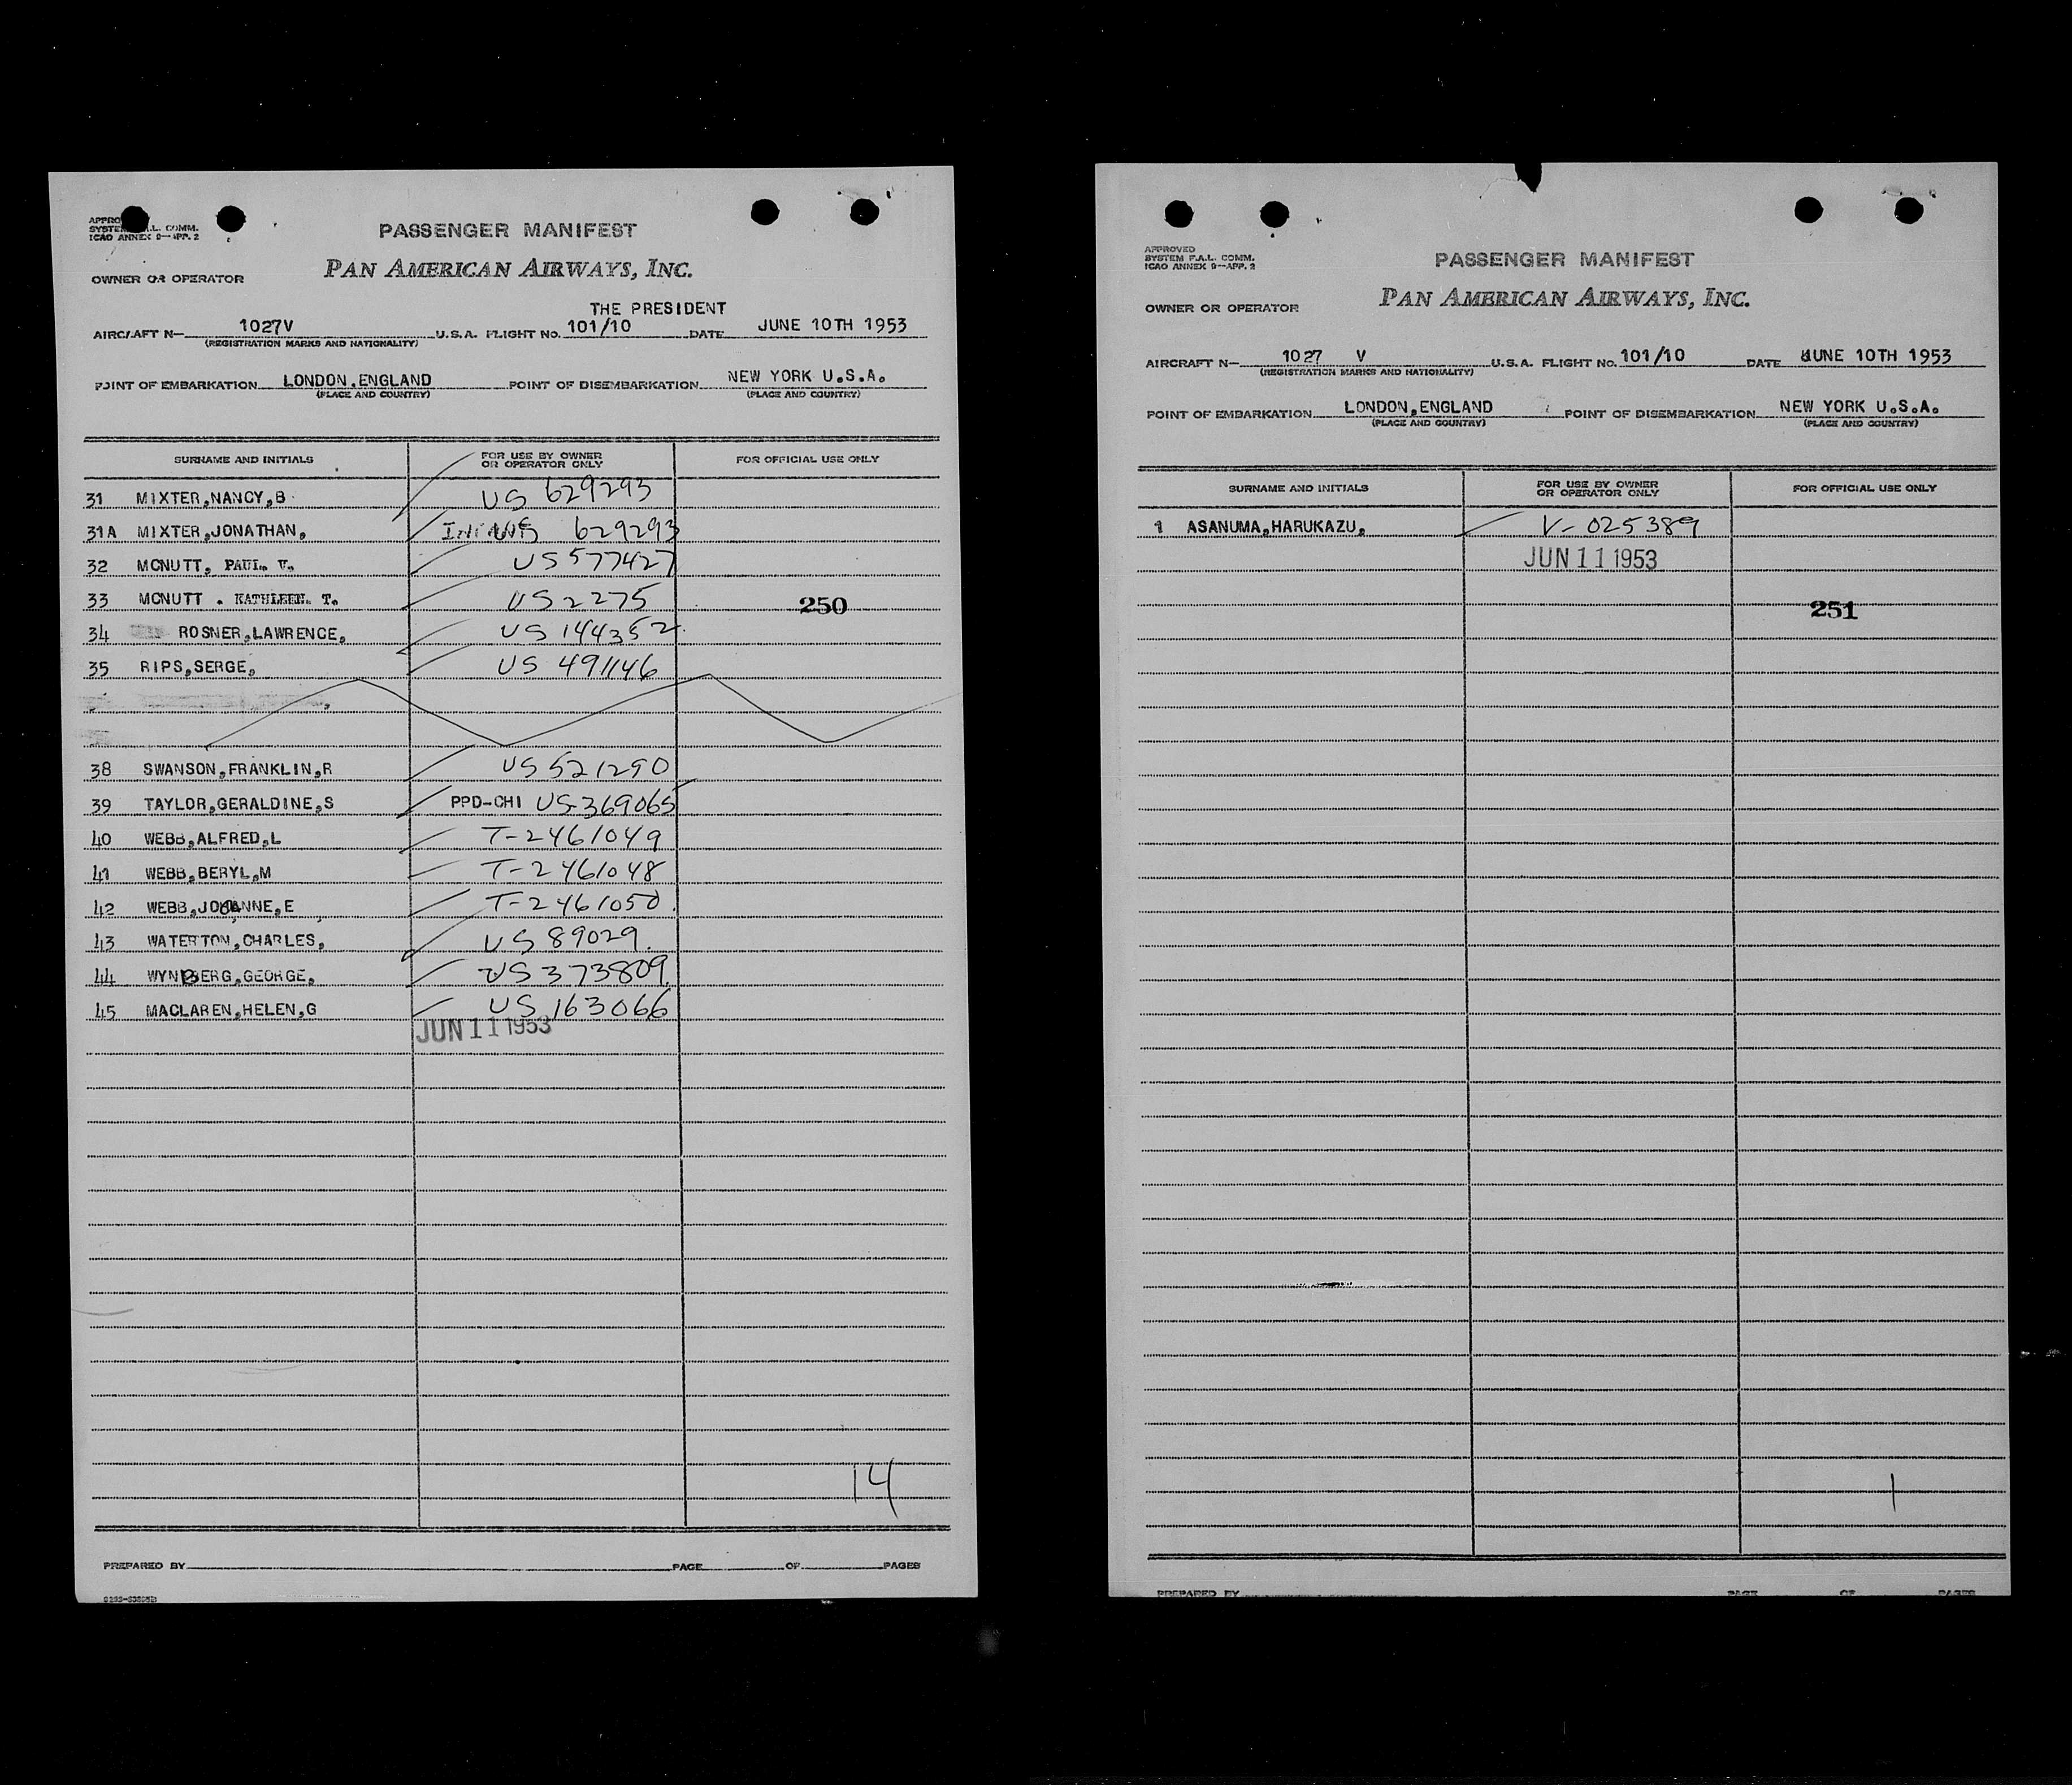 APPRO
SYSTE A.L. COMM.
ICAO ANNEX 9—APP. 2
PASSENGER MANIFEST
PAN AMERICAN AIRWAYS, INC.
OWNER OR OPERATOR
THE PRESIDENT
AIRCRAFT N— 1027V U.S.A. FLIGHT NO. 101/10 DATE JUNE 10TH 1953
(REGISTRATION MARKS AND NATIONALITY)
POINT OF EMBARKATION LONDON,ENGLAND POINT OF DISEMBARKATION NEW YORK U.S.A.
(PLACE AND COUNTRY) (PLACE AND COUNTRY)
SURNAME AND INITIALS FOR USE BY OWNER OR OPERATOR ONLY FOR OFFICIAL USE ONLY
31 MIXTER,NANCY,B US 629293
31A MIXTER,JONATHAN, US 629293
32 MCNUTT, PAUL. V. US 577427
33 MCNUTT . KATHLEEN. T. US 2275 250
34 ROSNER,LAWRENCE, US 144352
35 RIPS,SERGE, US 491146
38 SWANSON,FRANKLIN,R US 521290
39 TAYLOR,GERALDINE,S PPD-CHI US-369065
40 WEBB,ALFRED,L T-2461049
41 WEBB,BERYL,M T-2461048
42 WEBB, T-2461050
43 WATERTON,CHARLES, US 89029.
44 WYNBERG,GEORGE, US 373809
45 MACLAREN,HELEN,G US 163066
JUN 11 1953
14
PREPARED BY PAGE OF PAGES
APPROVED
SYSTEM F.A.L. COMM.
ICAO ANNEX 9—APP. 2
PASSENGER MANIFEST
PAN AMERICAN AIRWAYS, INC.
OWNER OR OPERATOR
AIRCRAFT N— 1027 V U.S.A. FLIGHT NO. 101/10 DATE JUNE 10TH 1953
(REGISTRATION MARKS AND NATIONALITY)
POINT OF EMBARKATION LONDON,ENGLAND POINT OF DISEMBARKATION NEW YORK U.S.A.
(PLACE AND COUNTRY) (PLACE AND COUNTRY)
SURNAME AND INITIALS FOR USE BY OWNER OR OPERATOR ONLY FOR OFFICIAL USE ONLY
1 ASANUMA,HARUKAZU, V-025389
JUN 11 1953
251
1
PREPARED BY PAGE OF PAGES